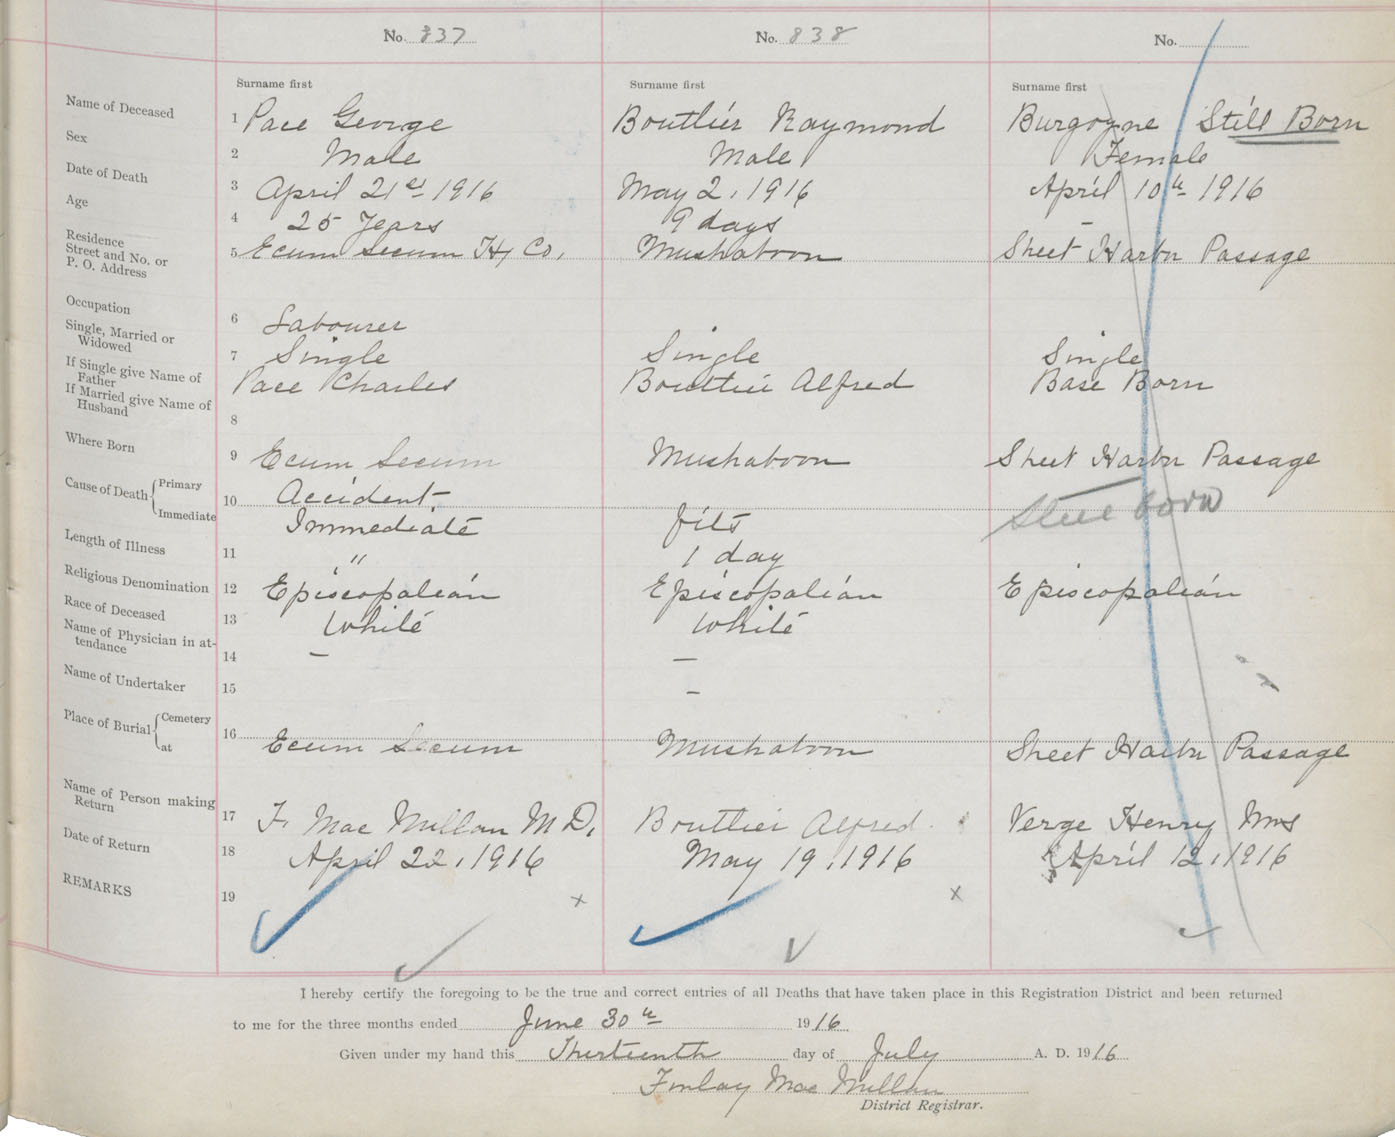 No. 837 No. 838 No.
Surname first Surname first Surname first
Name of Deceased 1 Pace George Boutlier Raymond Burgoyne Still Born
Sex 2 Male Male Female
Date of Death 3 April 21st 1916 May 2, 1916 April 10th 1916
Age 4 25 Years 9 days –
Residence
Street and No. or
P. O. Address 5 Ecum Secum Hx Co. Mushaboon Sheet Harbr Passage
Occupation 6 Labourer
Single, Married or
Widowed 7 Single Single Single
If Single give Name of
Father Pace Charles Boutlier Alfred Base Born
If Married give Name of
Husband 8
Where Born 9 Ecum Secum Mushaboon Sheet Harbr Passage
Cause of Death { Primary 10 Accident Still born
Immediate Immediate fits
Length of Illness 11 " 1 day
Religious Denomination 12 Episcopalian Episcopalian Episcopalian
Race of Deceased 13 White White
Name of Physician in at-
tendance 14 – –
Name of Undertaker 15 –
Place of Burial { Cemetery 16
at Ecum Secum Mushaboon Sheet Harbr Passage
Name of Person making
Return 17 F. Mac Millan M.D. Boutlier Alfred Verge Henry Mrs
Date of Return 18 April 22, 1916 May 19, 1916 April 12, 1916
REMARKS 19 x x
I hereby certify the foregoing to be the true and correct entries of all Deaths that have taken place in this Registration District and been returned
to me for the three months ended June 30th 1916
Given under my hand this Thirteenth day of July A. D. 1916
Finlay Mac Millan
District Registrar.